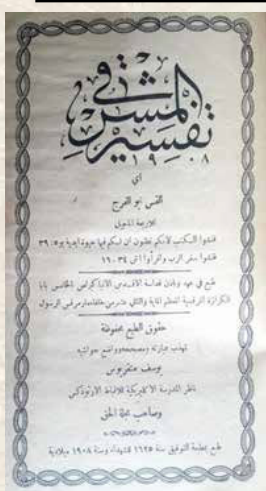 تفسير المشرقي
١٩٠٨
أي
القس ابو الفرج
للاربعة اناجيل
فتشوا الكتب لأنكم تظنون ان لكم فيها حيوة ابدية يو ٥ : ٣٩
فتشوا سفر الرب واقرأوا اش ٣٤ : ١٦
طبع في عهد قداسة الاقدس الانبا كيرلس الخامس بابا
الكرازة المرقسية المعظم الماية والثاني عشر من خلفاء مار مرقس الرسول
حقوق الطبع محفوظة
تهذيب عبارته ومصححه وواضع حواشيه
يوسف منقريوس
ناظر المدرسة الاكليريكية للاقباط الارثوذكس
وصاحب مجلة الحق
طبع بمطبعة التوفيق سنة ١٦٢٥ للشهداء وسنة ١٩٠٨ ميلادية